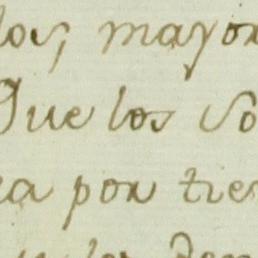 los, mayor
Que los So
ea por tres